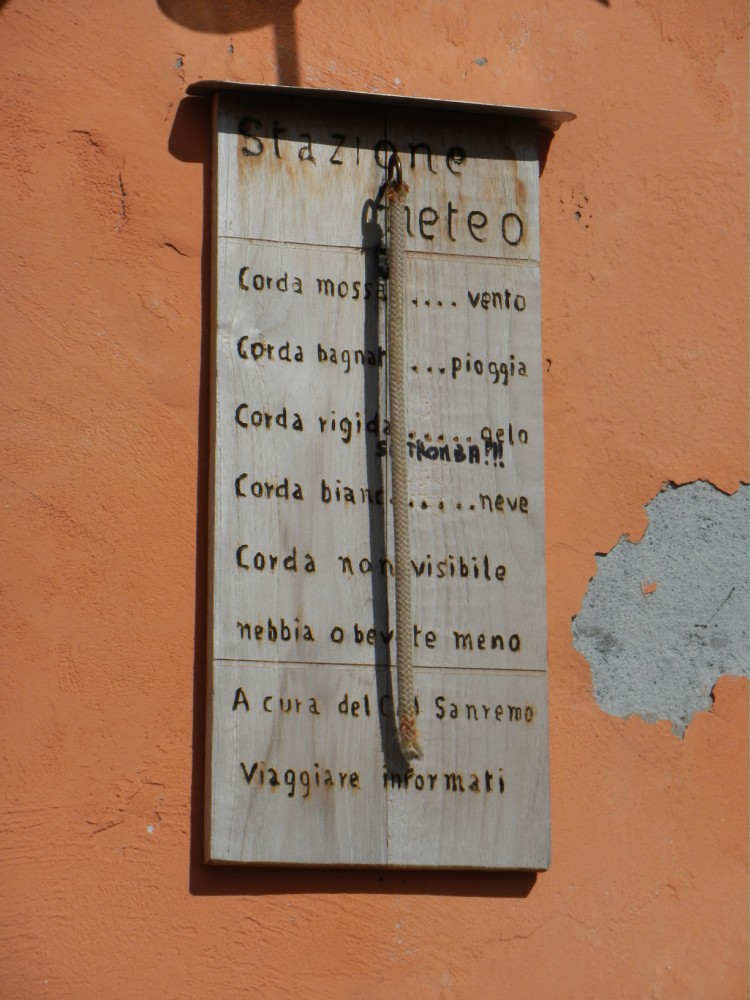 Stazione
meteo
Corda mossa .... vento
Corda bagnat ...pioggia
Corda rigida .....gelo
Corda bianc......neve
Corda non visibile
nebbia o bevete meno
A cura del Sanremo
Viaggiare informati